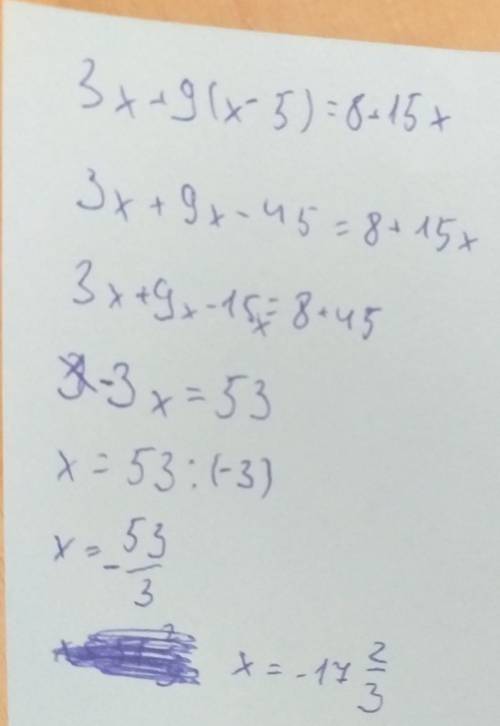 3x+9(x-5)=8+15x
3x+9x-45=8+15x
3x+9x-15x=8+45
-3x=53
x=53:(-3)
x=-53/3
x=-17 2/3